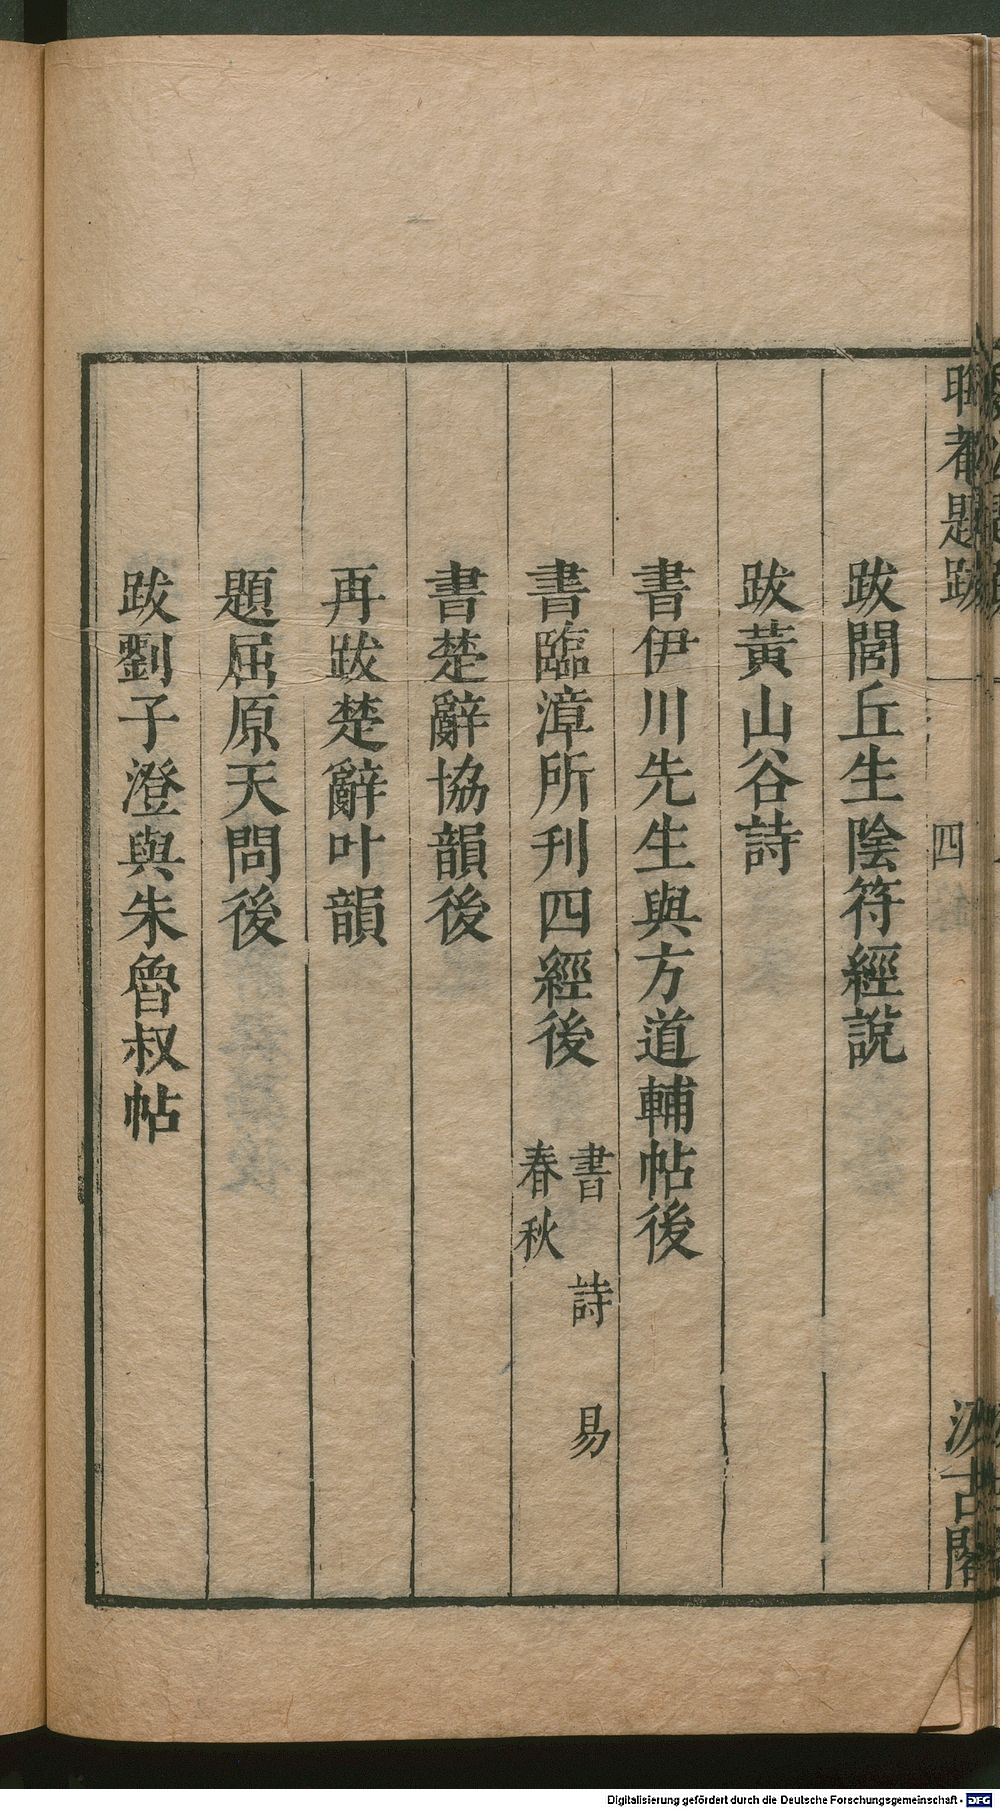 題跋
四
汲古閣
跋閭丘生陰符經說
跋黃山谷詩
書伊川先生與方道輔帖後
書臨漳所刊四經後 書 詩 易 春秋
書楚辭協韻後
再跋楚辭叶韻
題屈原天問後
跋劉子澄與朱魯叔帖
Digitalisierung gefördert durch die Deutsche Forschungsgemeinschaft - DFG